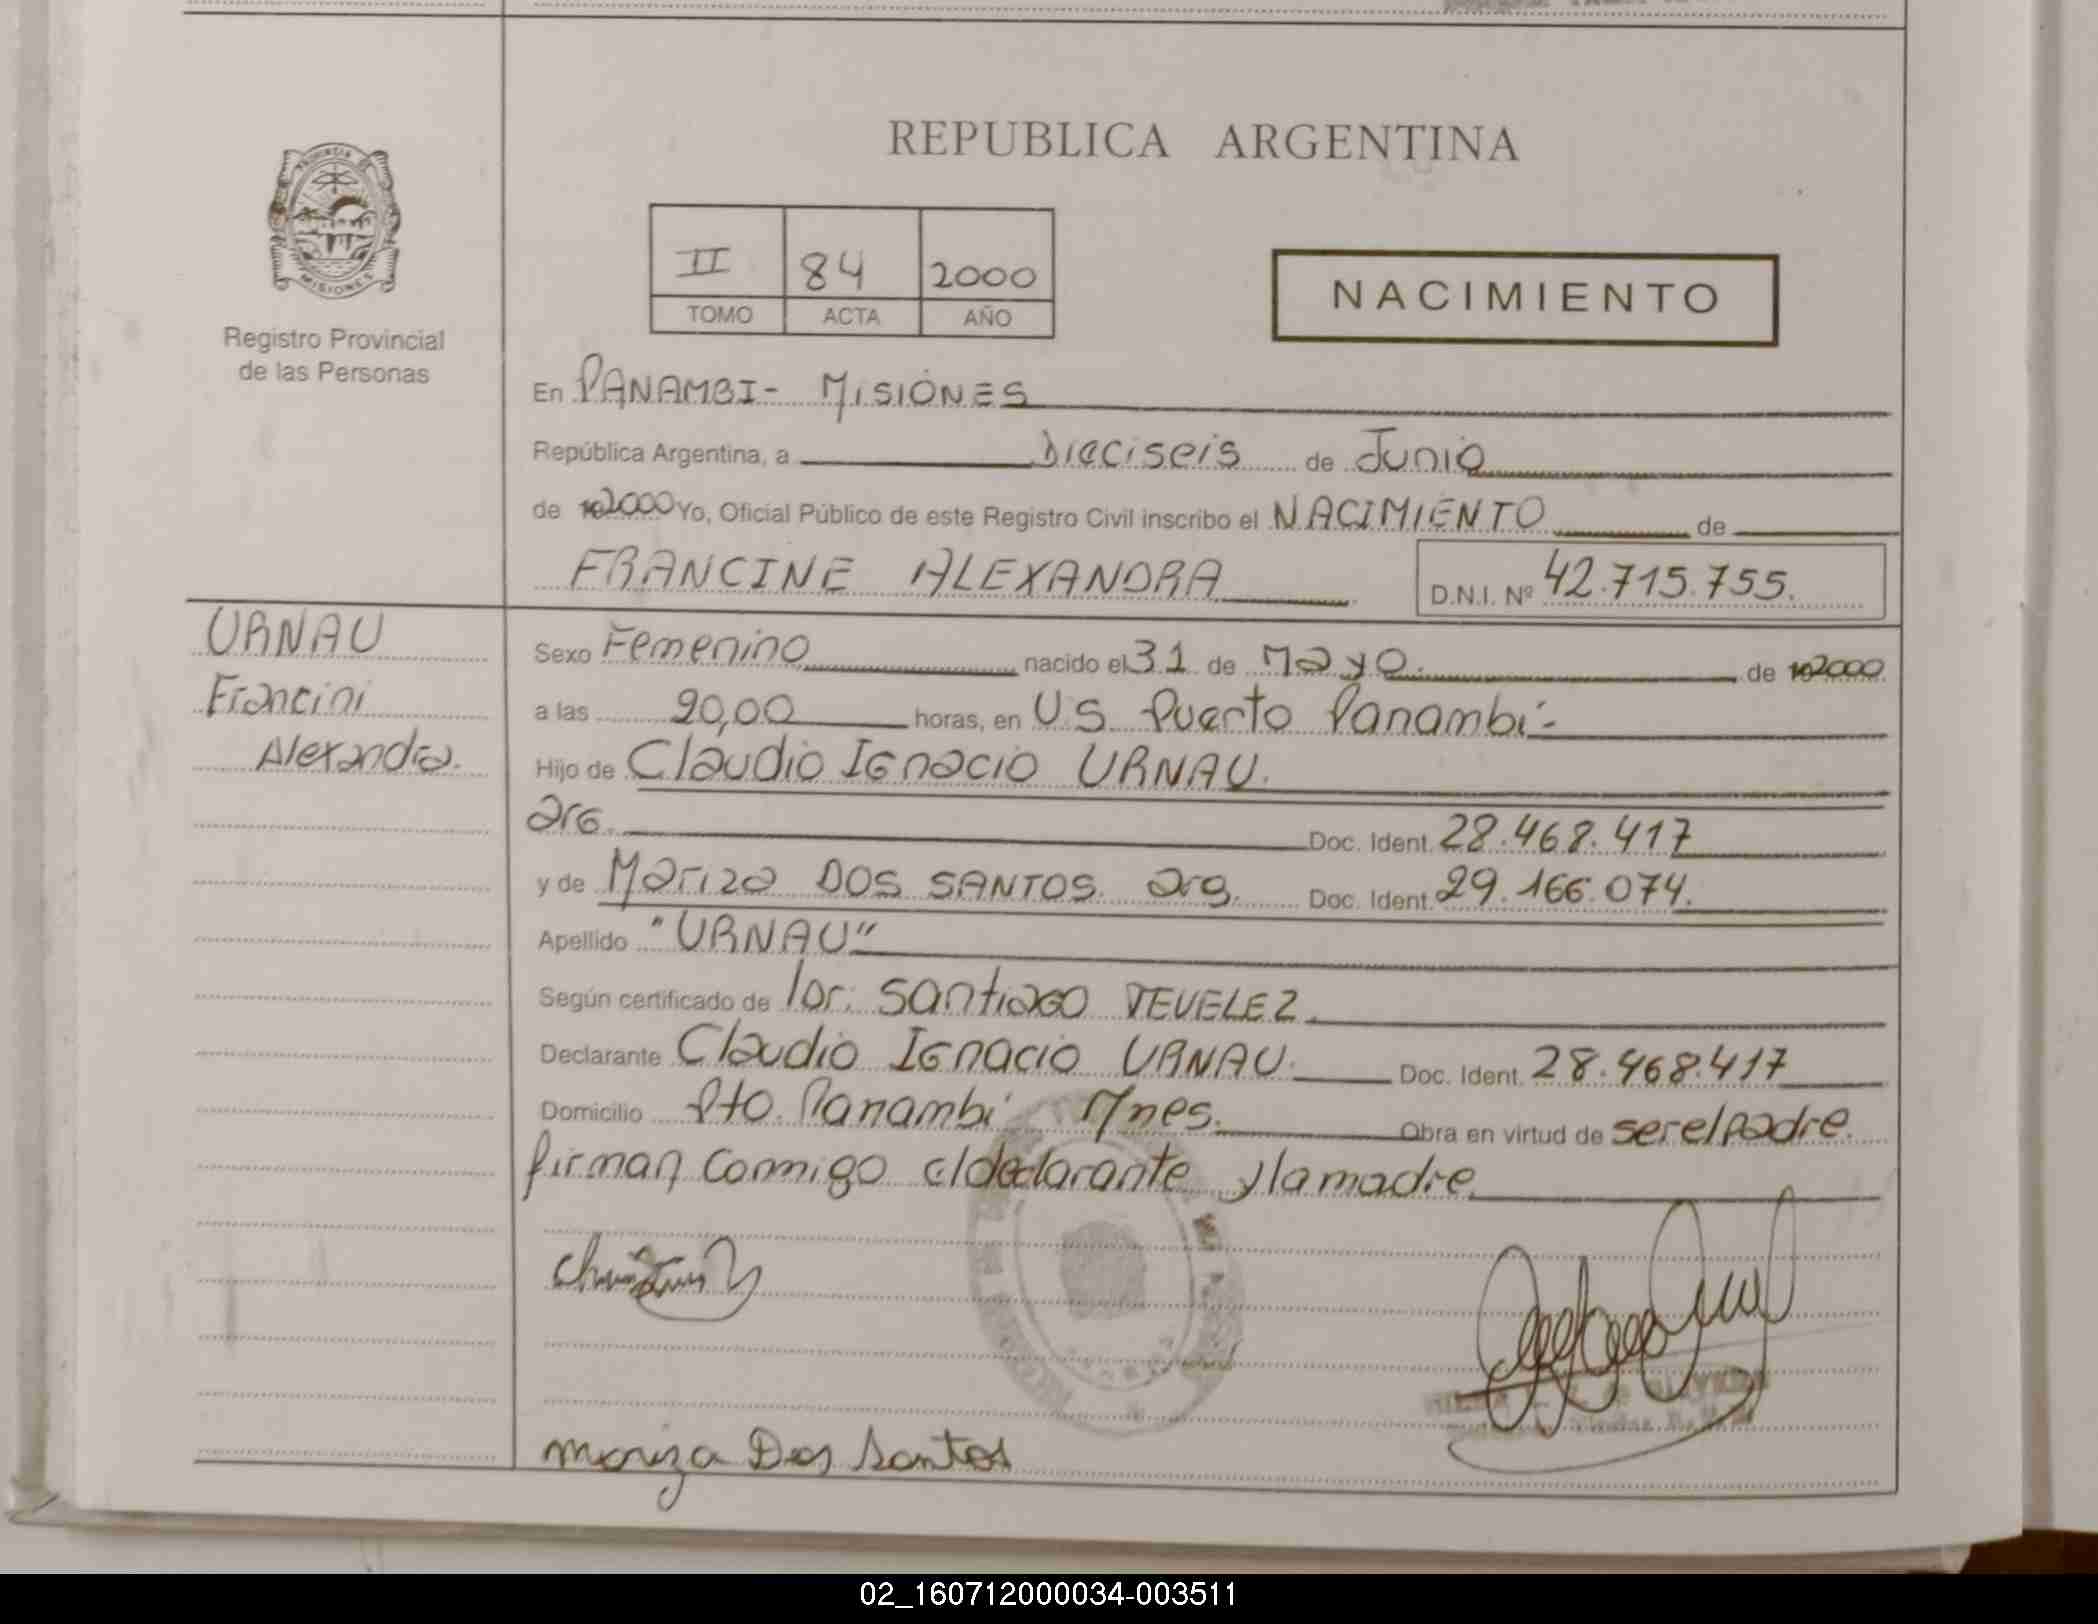 REPUBLICA ARGENTINA
PROVINCIA DE
MISIONES
Registro Provincial
de las Personas
II 84 2000
TOMO ACTA AÑO
NACIMIENTO
En PANAMBI - MISIONES
República Argentina, a Dieciseis de Junio
de 2000 Yo, Oficial Público de este Registro Civil inscribo el NACIMIENTO de
FRANCINE ALEXANDRA D.N.I. Nº 42.715.755.
URNAU
Francini
Alexandra.
Sexo Femenino nacido el 31 de Mayo. de 2000
a las 20,00 horas, en U.S. Puerto Panambí-
Hijo de Claudio Ignacio URNAU.
arg. Doc. Ident. 28.468.417
y de Mariza DOS SANTOS. arg. Doc. Ident. 29.166.074.
Apellido "URNAU"
Según certificado de Santiago TEVELEZ.
Declarante Claudio Ignacio URNAU. Doc. Ident. 28.468.417
Domicilio Pto. Panambí Mnes. Obra en virtud de ser el padre.
firman conmigo el declarante y la madre
Mariza Dos Santos
02_160712000034-003511